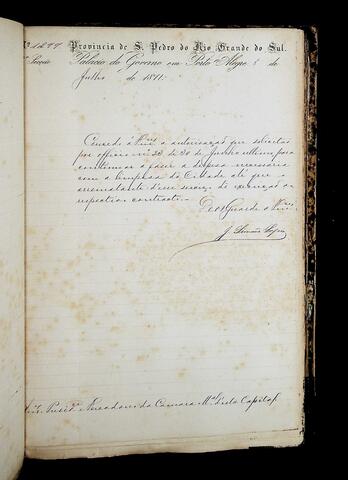 Nº 1277 Provincia de S. Pedro do Rio Grande do Sul.
Secção Palacio do Governo em Porto Alegre 8 de
Julho de 1871.
Concedo a Vmces a autorisação que solicitão
por officio nº 23 de 30 de Junho ultimo para
continuar a fazer a despeza necessaria
com a limpeza da Cidade até que o
arrematante d'esse serviço dê execução ao
respectivo contracto.
Deos Guarde a Vmces
J. Simões Lopes
Presid. Vereadores da Camara Mal desta Capital